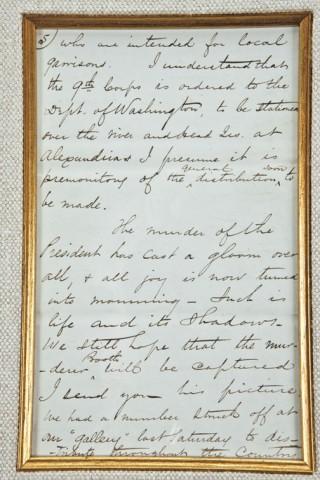 5) who are intended for local
garrisons. I understand that
the 9th Corps is ordered to the
Dept. of Washington, to be stationed
over the river and Head Qrs. at
Alexandria & I presume it is
premonitory of the general distribution, soon to
be made.
The murder of the
President has cast a gloom over
all, & all joy is now turned
into mourning – Such is
life and its shadows –
We still hope that the mur-
derer Booth will be captured
I send you his picture
We had a number struck off at
our "gallery" last Saturday to dis-
tribute throughout the Country